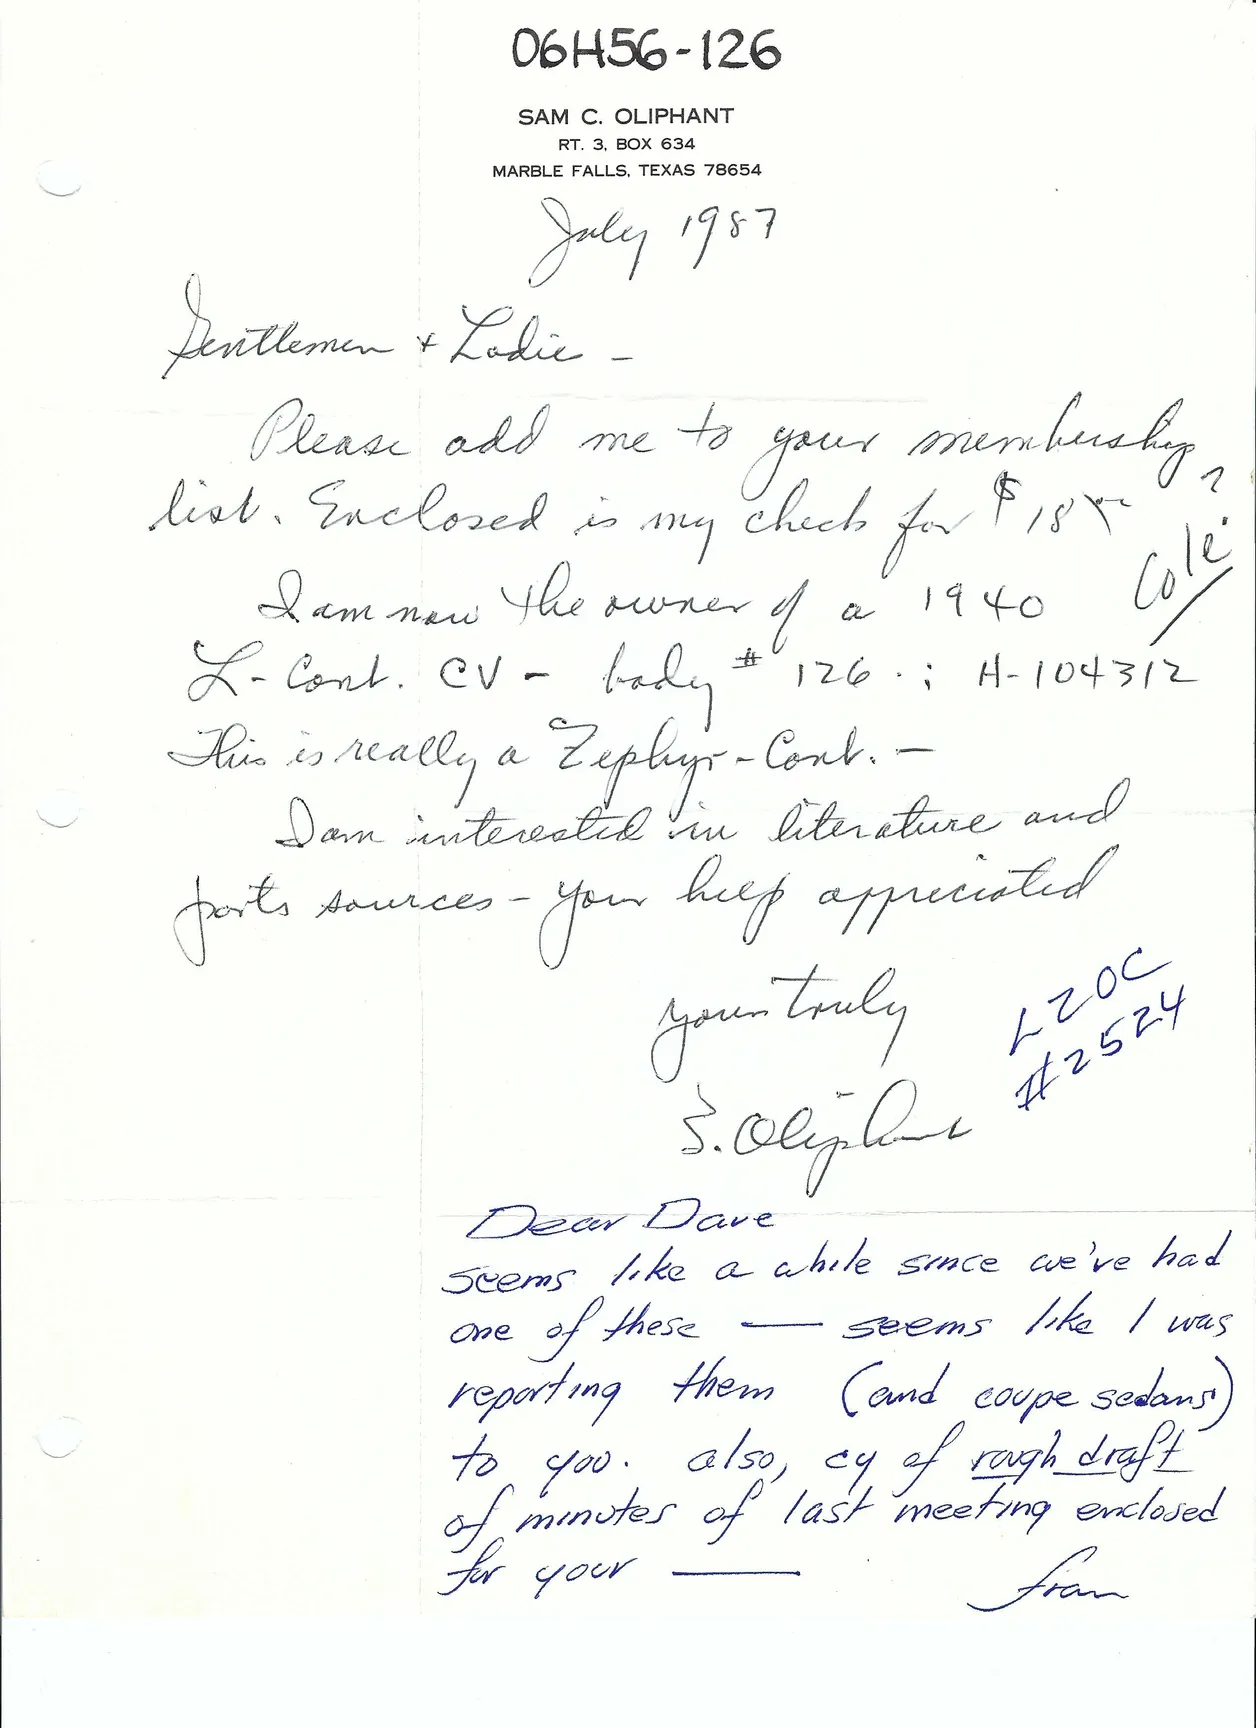 06H56-126
SAM C. OLIPHANT
RT. 3, BOX 634
MARBLE FALLS, TEXAS 78654
July 1987
Gentlemen + Ladie –
Please add me to your membership
list. Enclosed is my check for $18
?
I am now the owner of a 1940
L-Cont. CV – body # 126 . ; H-104312
This is really a Zephyr-Cont. –
I am interested in literature and
parts sources – your help appreciated
yours truly
LZOC
#2524
S. Oliphant
Dear Dave
seems like a while since we've had
one of these — seems like I was
reporting them (and coupe sedans)
to you. also, cy of rough draft
of minutes of last meeting enclosed
for your —
fran